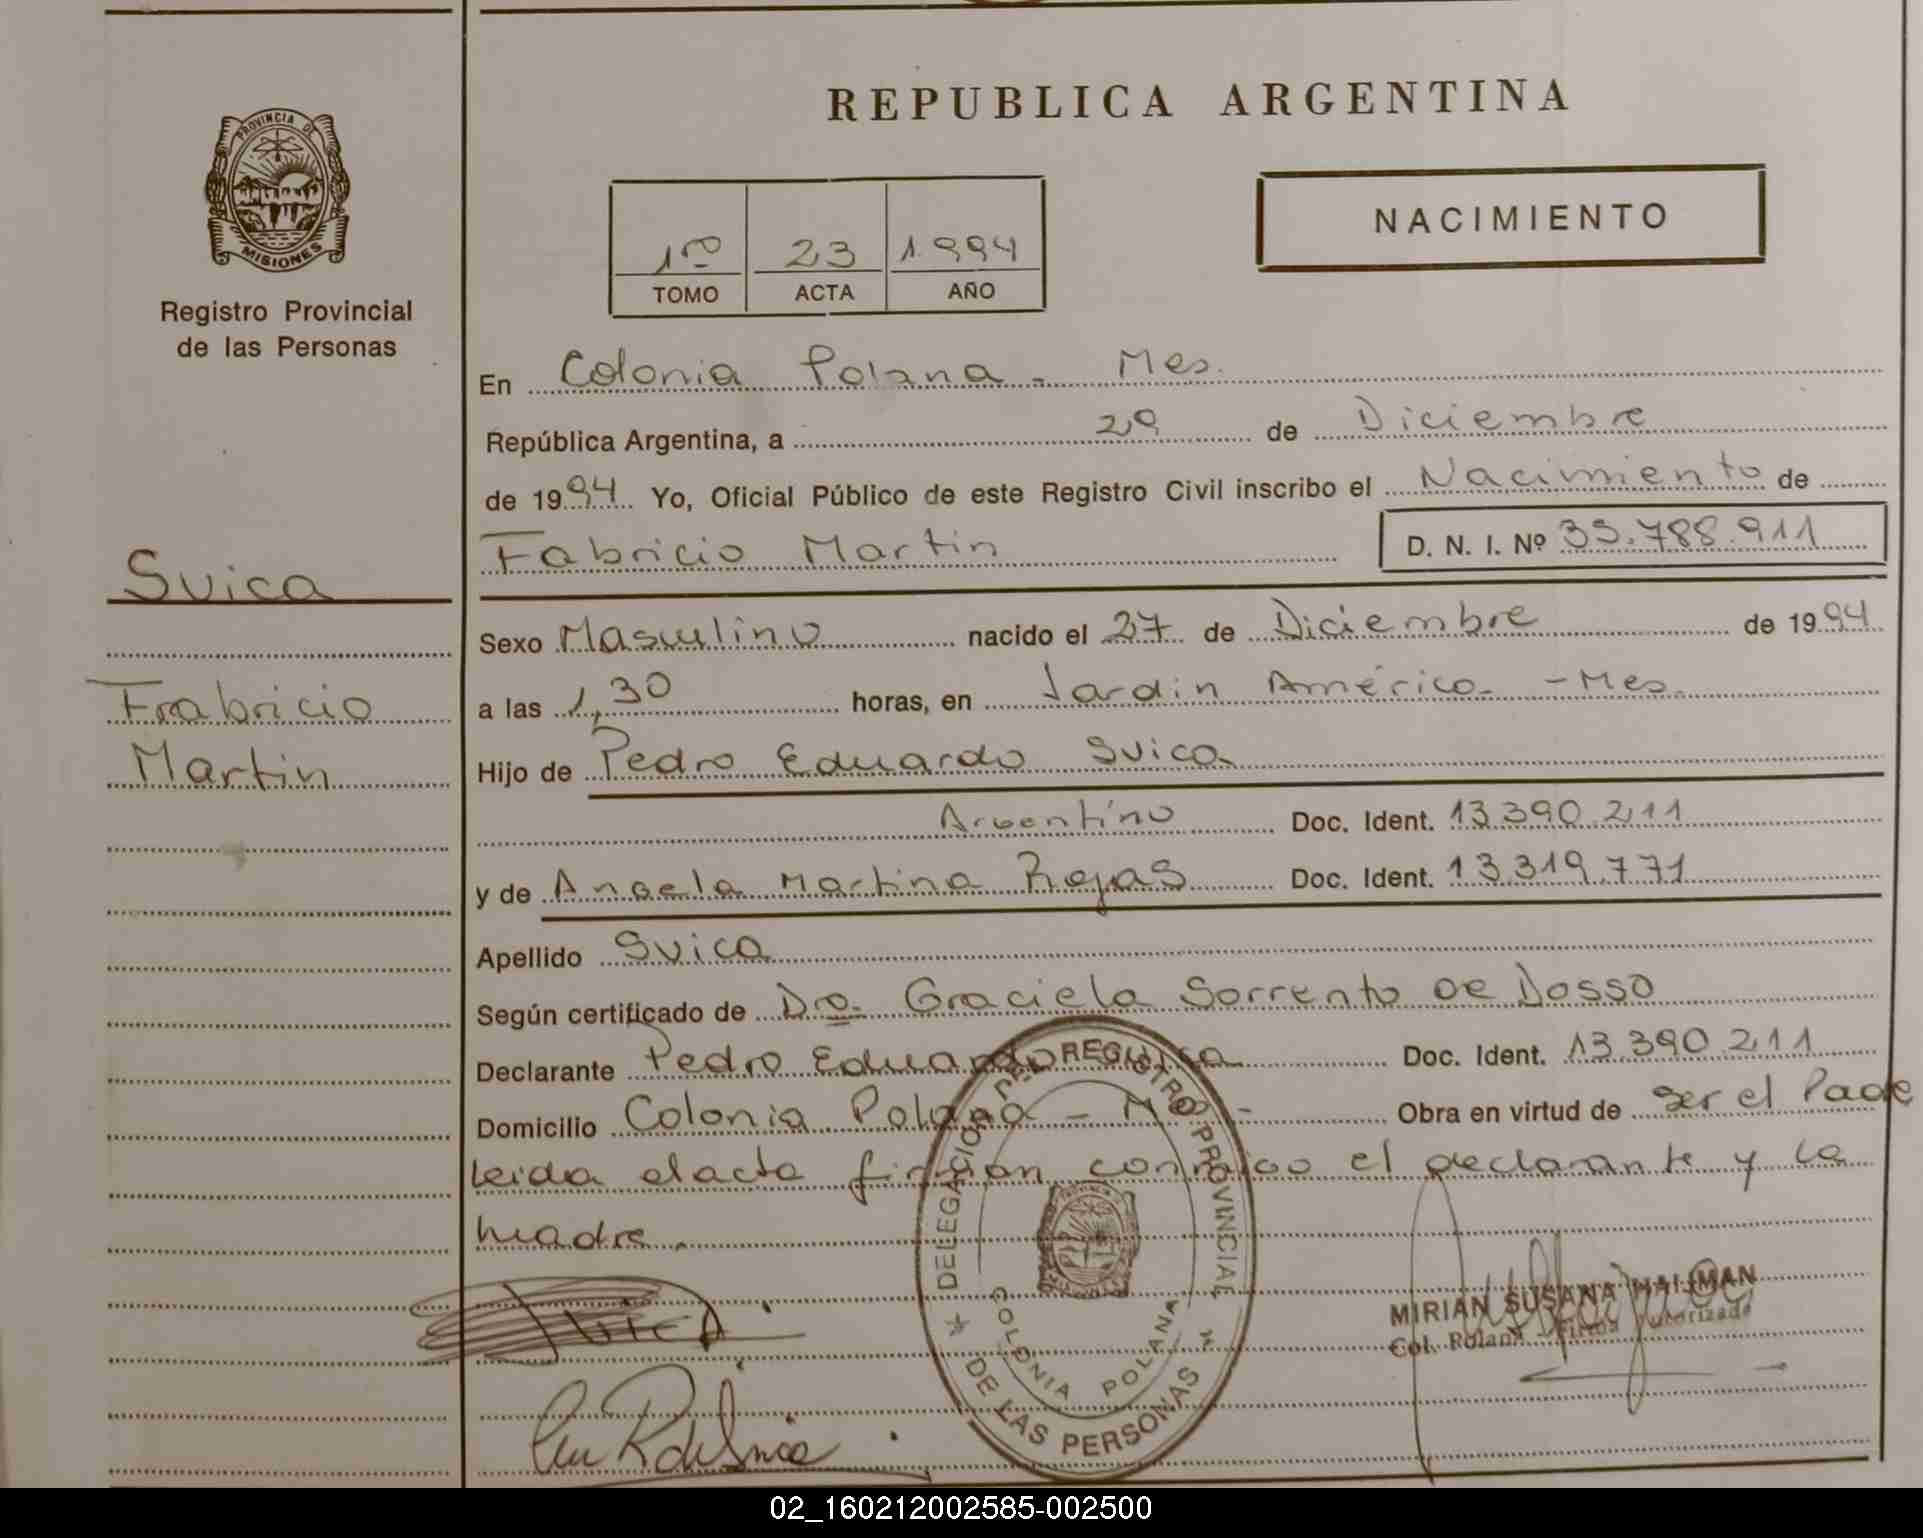 PROVINCIA DE
MISIONES
Registro Provincial
de las Personas
Suica
Fabricio
Martin
REPUBLICA ARGENTINA
1ro 23 1.994
TOMO ACTA AÑO
NACIMIENTO
En Colonia Polana - Mes.
República Argentina, a 29 de Diciembre
de 1994 Yo, Oficial Público de este Registro Civil inscribo el Nacimiento de
Fabricio Martin D. N. I. Nº 35.788.911
Sexo Masculino nacido el 27 de Diciembre de 1994
a las 1,30 horas, en Jardin América - Mes.
Hijo de Pedro Eduardo Suica
Argentino Doc. Ident. 13.390.211
y de Angela Martina Rojas Doc. Ident. 13.319.771
Apellido Suica
Según certificado de Dra. Graciela Sorrento de Dosso
Declarante Pedro Eduardo Suica Doc. Ident. 13.390.211
Domicilio Colonia Polana - Mes - Obra en virtud de ser el Padre
leida el acta firman conmigo el declarante y la
madre.
DELEGACION DEL REGISTRO PROVINCIAL
DE LAS PERSONAS
COLONIA POLANA
MIRIAN SUSANA
Col. Polana - Firma Autorizada
02_160212002585-002500